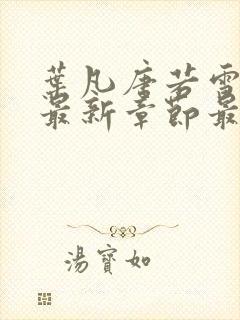 葉凡唐若雪
最新章節最
湯寶如